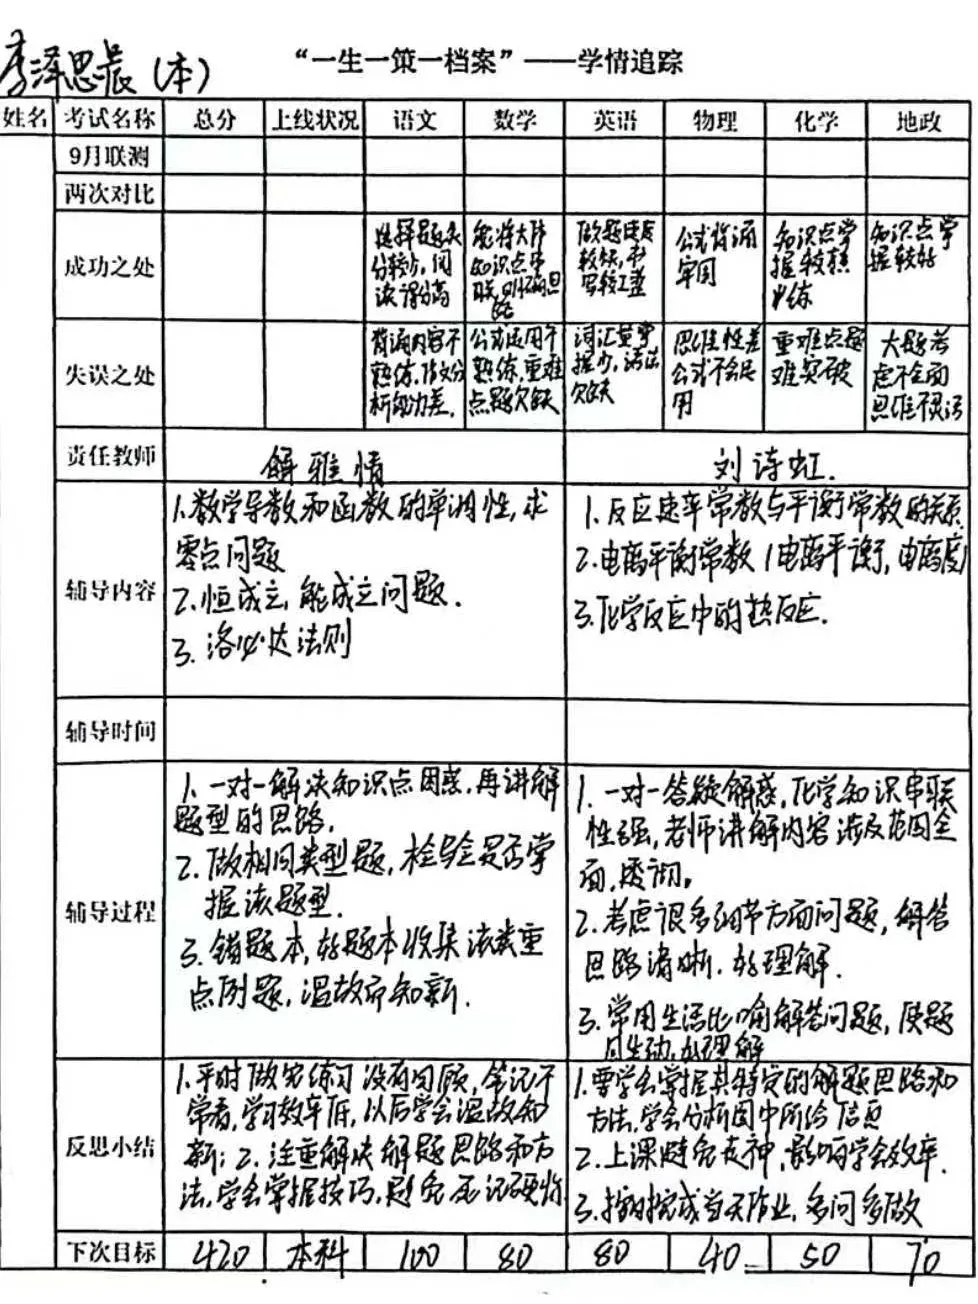 李泽思晨(本)
“一生一策一档案”——学情追踪
姓名 考试名称 总分 上线状况 语文 数学 英语 物理 化学 地政
9月联测
两次对比
成功之处
选择题失
分较少,阅
读得分高
能将大体
知识点串
联,
思
路
做题速度
较快,书
写较工整
公式背诵
牢固
知识点掌
握较熟
练
知识点掌
握较好
失误之处
背诵内容不
熟练,作文分
析能力差.
公式运用不
熟练,重难
点题欠缺
词汇量掌
握少,语法
欠缺
思维性差
公式不会运
用
重难点题
难突破
大题考
虑不全面
思维不灵活
责任教师 解雅情 刘诗虹.
辅导内容
1.数学导数和函数的单调性,求
零点问题
2.恒成立,能成立问题.
3.洛必达法则
1.反应速率常数与平衡常数的关系
2.电离平衡常数(电离平衡,电离度)
3.化学反应中的热反应.
辅导时间
辅导过程
1.一对一解决知识点困惑,再讲解
题型的思路,
2.做相同类型题,检验是否掌
握该题型.
3.错题本,好题本收集该类重
点例题,温故而知新.
1.一对一答疑解惑,化学知识串联
性强,老师讲解内容涉及范围全
面,透彻。
2.考虑很多细节方面问题,解答
思路清晰.好理解.
3.常用生活比喻解答问题,使题
目生动,好理解
反思小结
1.平时做完练习没有回顾,笔记不
常看,学习效率低,以后学会温故知
新;2.注重解决解题思路和方
法,学会掌握技巧,避免死记硬背
1.要学会掌握其特定的解题思路和
方法,学会分析图中所给信息
2.上课避免走神,影响学会效率.
3.按时完成当天作业,多问多做
下次目标 420 本科 100 80 80 40 50 70